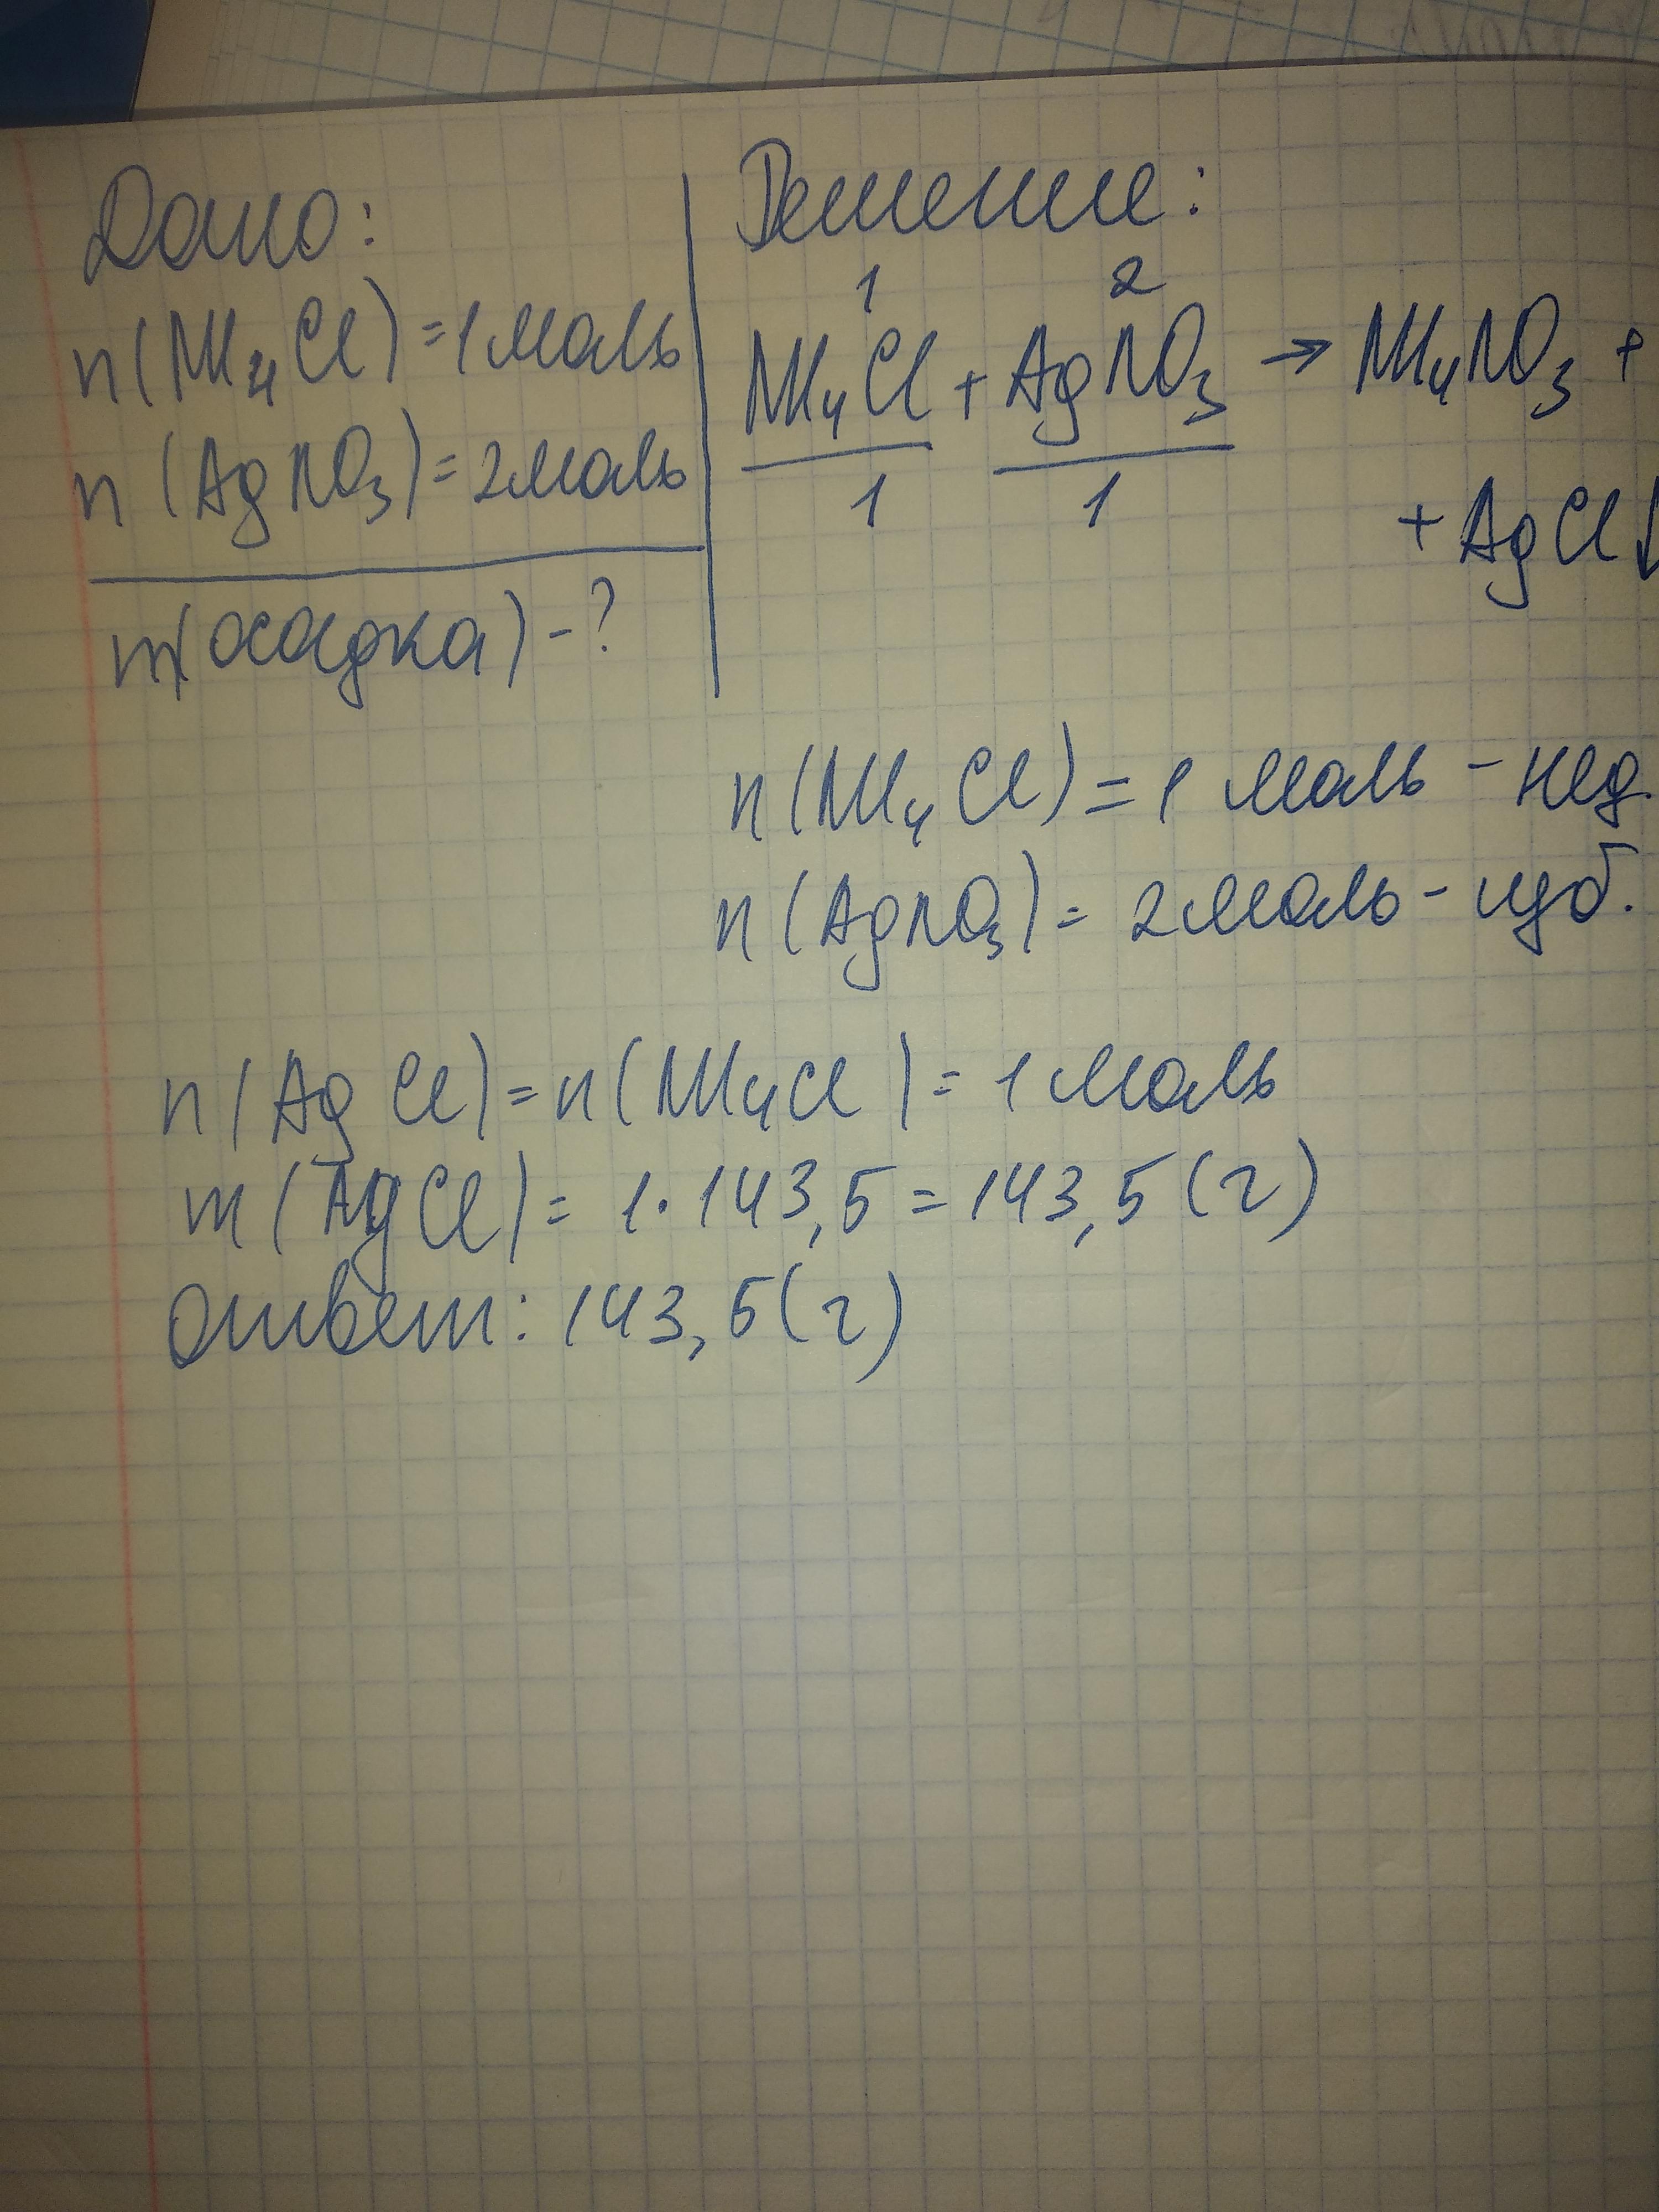 Дано:
n(NH4Cl)=1моль
n(AgNO3)=2моль
m(осадка)-?
Решение:
1 2
NH4Cl+AgNO3→NH4NO3+
1 1
+AgCl↓
n(NH4Cl)=1 моль-нед.
n(AgNO3)=2моль-изб.
n(AgCl)=n(NH4Cl)=1моль
m(AgCl)=1·143,5=143,5(г)
Ответ:143,5(г)